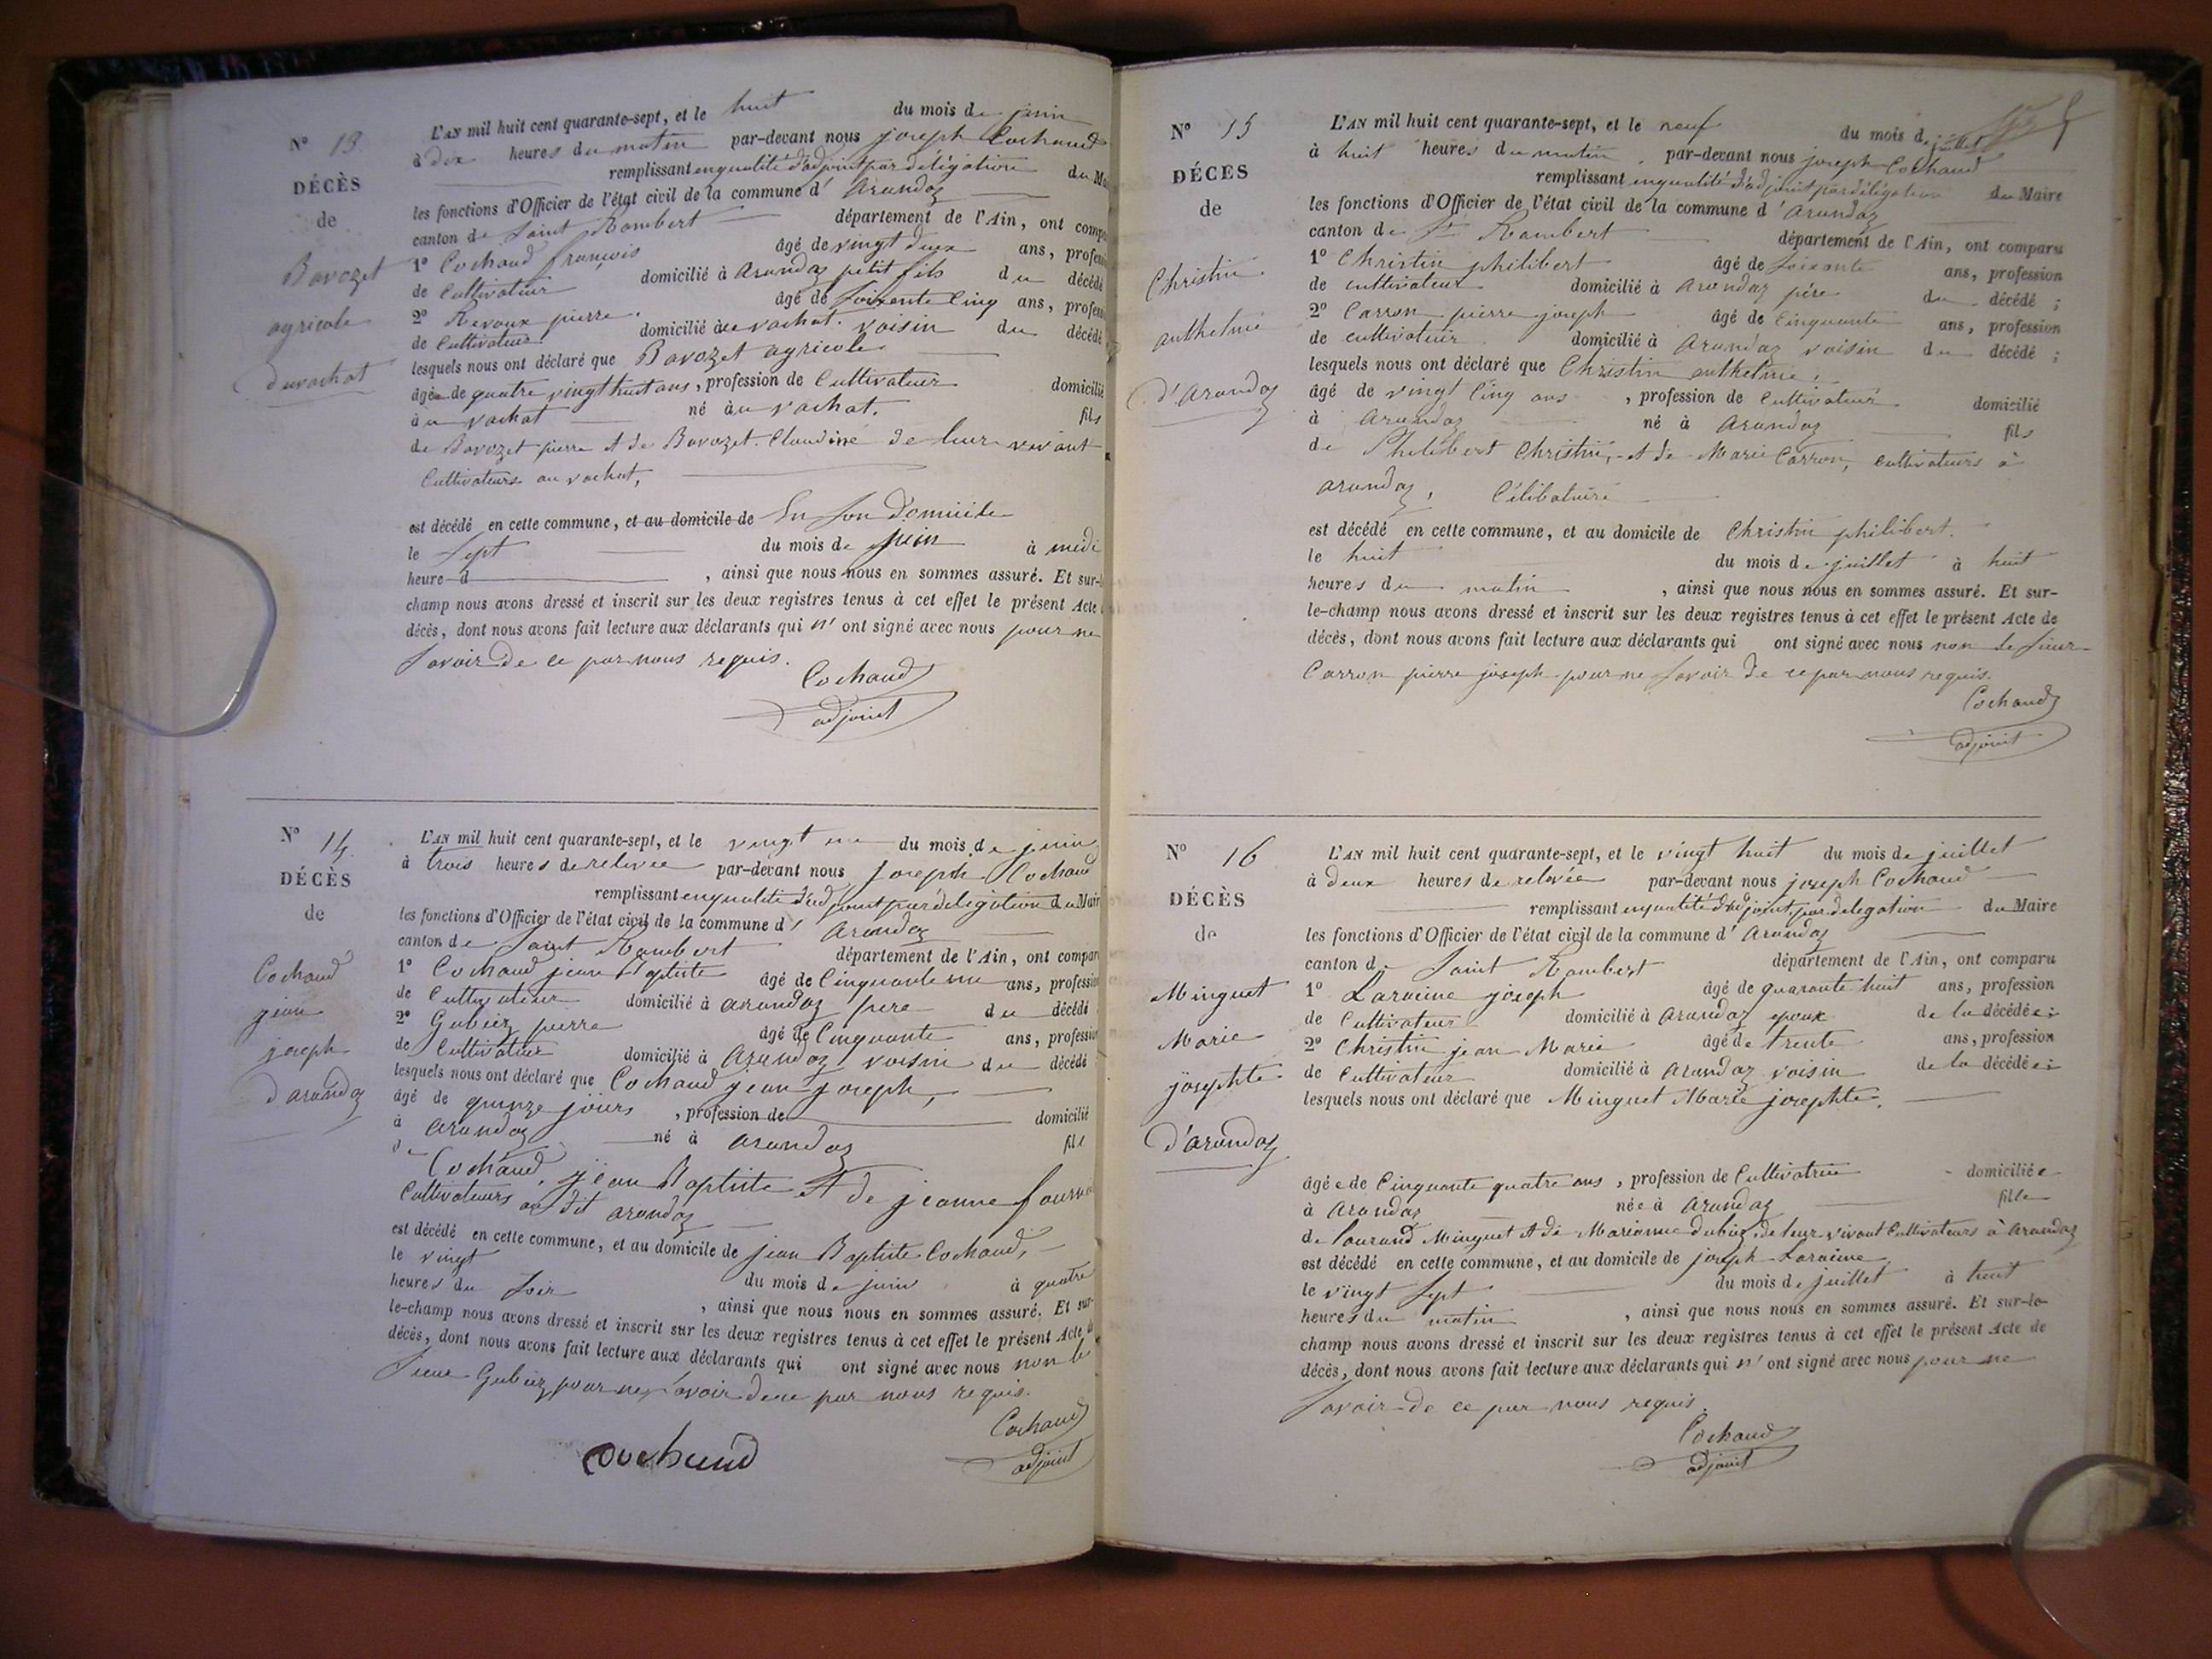 N° 13
DÉCÈS
de
Bavozet
agricole
du vachat
L'AN mil huit cent quarante-sept, et le huit du mois de juin
à dix heures du matin par-devant nous joseph Cochaud
remplissant en qualité d'adjoint par délégation du Ma
les fonctions d'Officier de l'état civil de la commune d' Arandaz
canton de Saint Rambert département de l'Ain, ont compa
1° Cochaud françois âgé de vingt deux ans, profess
de Cultivateur domicilié à Arandaz petit fils du décédé
2° Revoux pierre âgé de soixante cinq ans, profess
de Cultivateur domicilié au vachat. voisin du décédé
lesquels nous ont déclaré que Bavozet agricole
âgé de quatre vingt huit ans, profession de Cultivateur domicilié
au vachat né au vachat. fils
de Bavozet pierre et de Bavozet Claudine de leur vivant
Cultivateurs au vachat,
est décédé en cette commune, et au domicile de En son Domicile
le sept du mois de juin à midi
heure d , ainsi que nous nous en sommes assuré. Et sur-le
champ nous avons dressé et inscrit sur les deux registres tenus à cet effet le présent Acte
décès, dont nous avons fait lecture aux déclarants qui n' ont signé avec nous pour ne
savoir de ce par nous requis.
Cochaud
adjoint
N° 14
DÉCÈS
de
Cochaud
jean
joseph
d'arandaz
L'AN mil huit cent quarante-sept, et le vingt un du mois de juin
à trois heures de relevée par-devant nous joseph Cochaud
remplissant en qualité d'adjoint par délégation du Mair
les fonctions d'Officier de l'état civil de la commune d' Arandaz
canton de Saint Rambert département de l'Ain, ont compar
1° Cochaud jean Baptiste âgé de Cinquante un ans, profession
de Cultivateur domicilié à arandaz père du décédé
2° Gubiez pierre âgé de Cinquante ans, profession
de Cultivateur domicilié à Arandaz voisin du décédé
lesquels nous ont déclaré que Cochaud jean joseph,
âgé de quinze jours , profession de domicilié
à arandaz né à arandaz fils
de Cochaud, jean Baptiste et de jeanne
Cultivateurs au dit arandaz
est décédé en cette commune, et au domicile de jean Baptiste Cochaud,
le vingt du mois de juin à quatre
heures du soir , ainsi que nous nous en sommes assuré. Et sur-
le-champ nous avons dressé et inscrit sur les deux registres tenus à cet effet le présent Acte de
décès, dont nous avons fait lecture aux déclarants qui ont signé avec nous non le
sieur Gubiez pour ne savoir de ce par nous requis.
Cochaud
adjoint
Cochaud
N° 15
DÉCÈS
de
Christin
anthelme
d'Arandaz
L'AN mil huit cent quarante-sept, et le neuf du mois de juillet
à huit heures du matin par-devant nous joseph Cochaud
remplissant en qualité d'adjoint par délégation du Maire
les fonctions d'Officier de l'état civil de la commune d' Arandaz
canton de St Rambert département de l'Ain, ont comparu
1° Christin philibert âgé de soixante ans, profession
de cultivateur domicilié à Arandaz père du décédé ;
2° Carron pierre joseph âgé de cinquante ans, profession
de cultivateur domicilié à Arandaz voisin du décédé ;
lesquels nous ont déclaré que Christin anthelme,
âgé de vingt cinq ans , profession de Cultivateur domicilié
à Arandaz né à Arandaz fils
de Philibert Christin, et de Marie Carron, cultivateurs à
arandaz, Célibataire
est décédé en cette commune, et au domicile de Christin philibert.
le huit du mois de juillet à huit
heures du matin , ainsi que nous nous en sommes assuré. Et sur-
le-champ nous avons dressé et inscrit sur les deux registres tenus à cet effet le présent Acte de
décès, dont nous avons fait lecture aux déclarants qui ont signé avec nous non le sieur
Carron pierre joseph pour ne savoir de ce par nous requis.
Cochaud
adjoint
N° 16
DÉCÈS
de
Minguet
Marie
josephte
d'Arandaz
L'AN mil huit cent quarante-sept, et le vingt huit du mois de juillet
à deux heures de relevée par-devant nous joseph Cochaud
remplissant en qualité d'adjoint par délégation du Maire
les fonctions d'Officier de l'état civil de la commune d' Arandaz
canton de Saint Rambert département de l'Ain, ont comparu
1° Laracine joseph âgé de quarante huit ans, profession
de Cultivateur domicilié à Arandaz époux de la décédée ;
2° Christin jean Marie âgé de trente ans, profession
de Cultivateur domicilié à Arandaz voisin de la décédée ;
lesquels nous ont déclaré que Minguet Marie josephte.
âgée de Cinquante quatre ans , profession de Cultivatrice domiciliée
à Arandaz née à Arandaz fille
de Laurand Minguet et de Marianne Dubiez, de leur vivant Cultivateurs à Arandaz
est décédé en cette commune, et au domicile de joseph Laracine
le vingt sept du mois de juillet à huit
heures du matin , ainsi que nous nous en sommes assuré. Et sur-le-
champ nous avons dressé et inscrit sur les deux registres tenus à cet effet le présent Acte de
décès, dont nous avons fait lecture aux déclarants qui n' ont signé avec nous pour ne
savoir de ce par nous requis.
Cochaud
adjoint